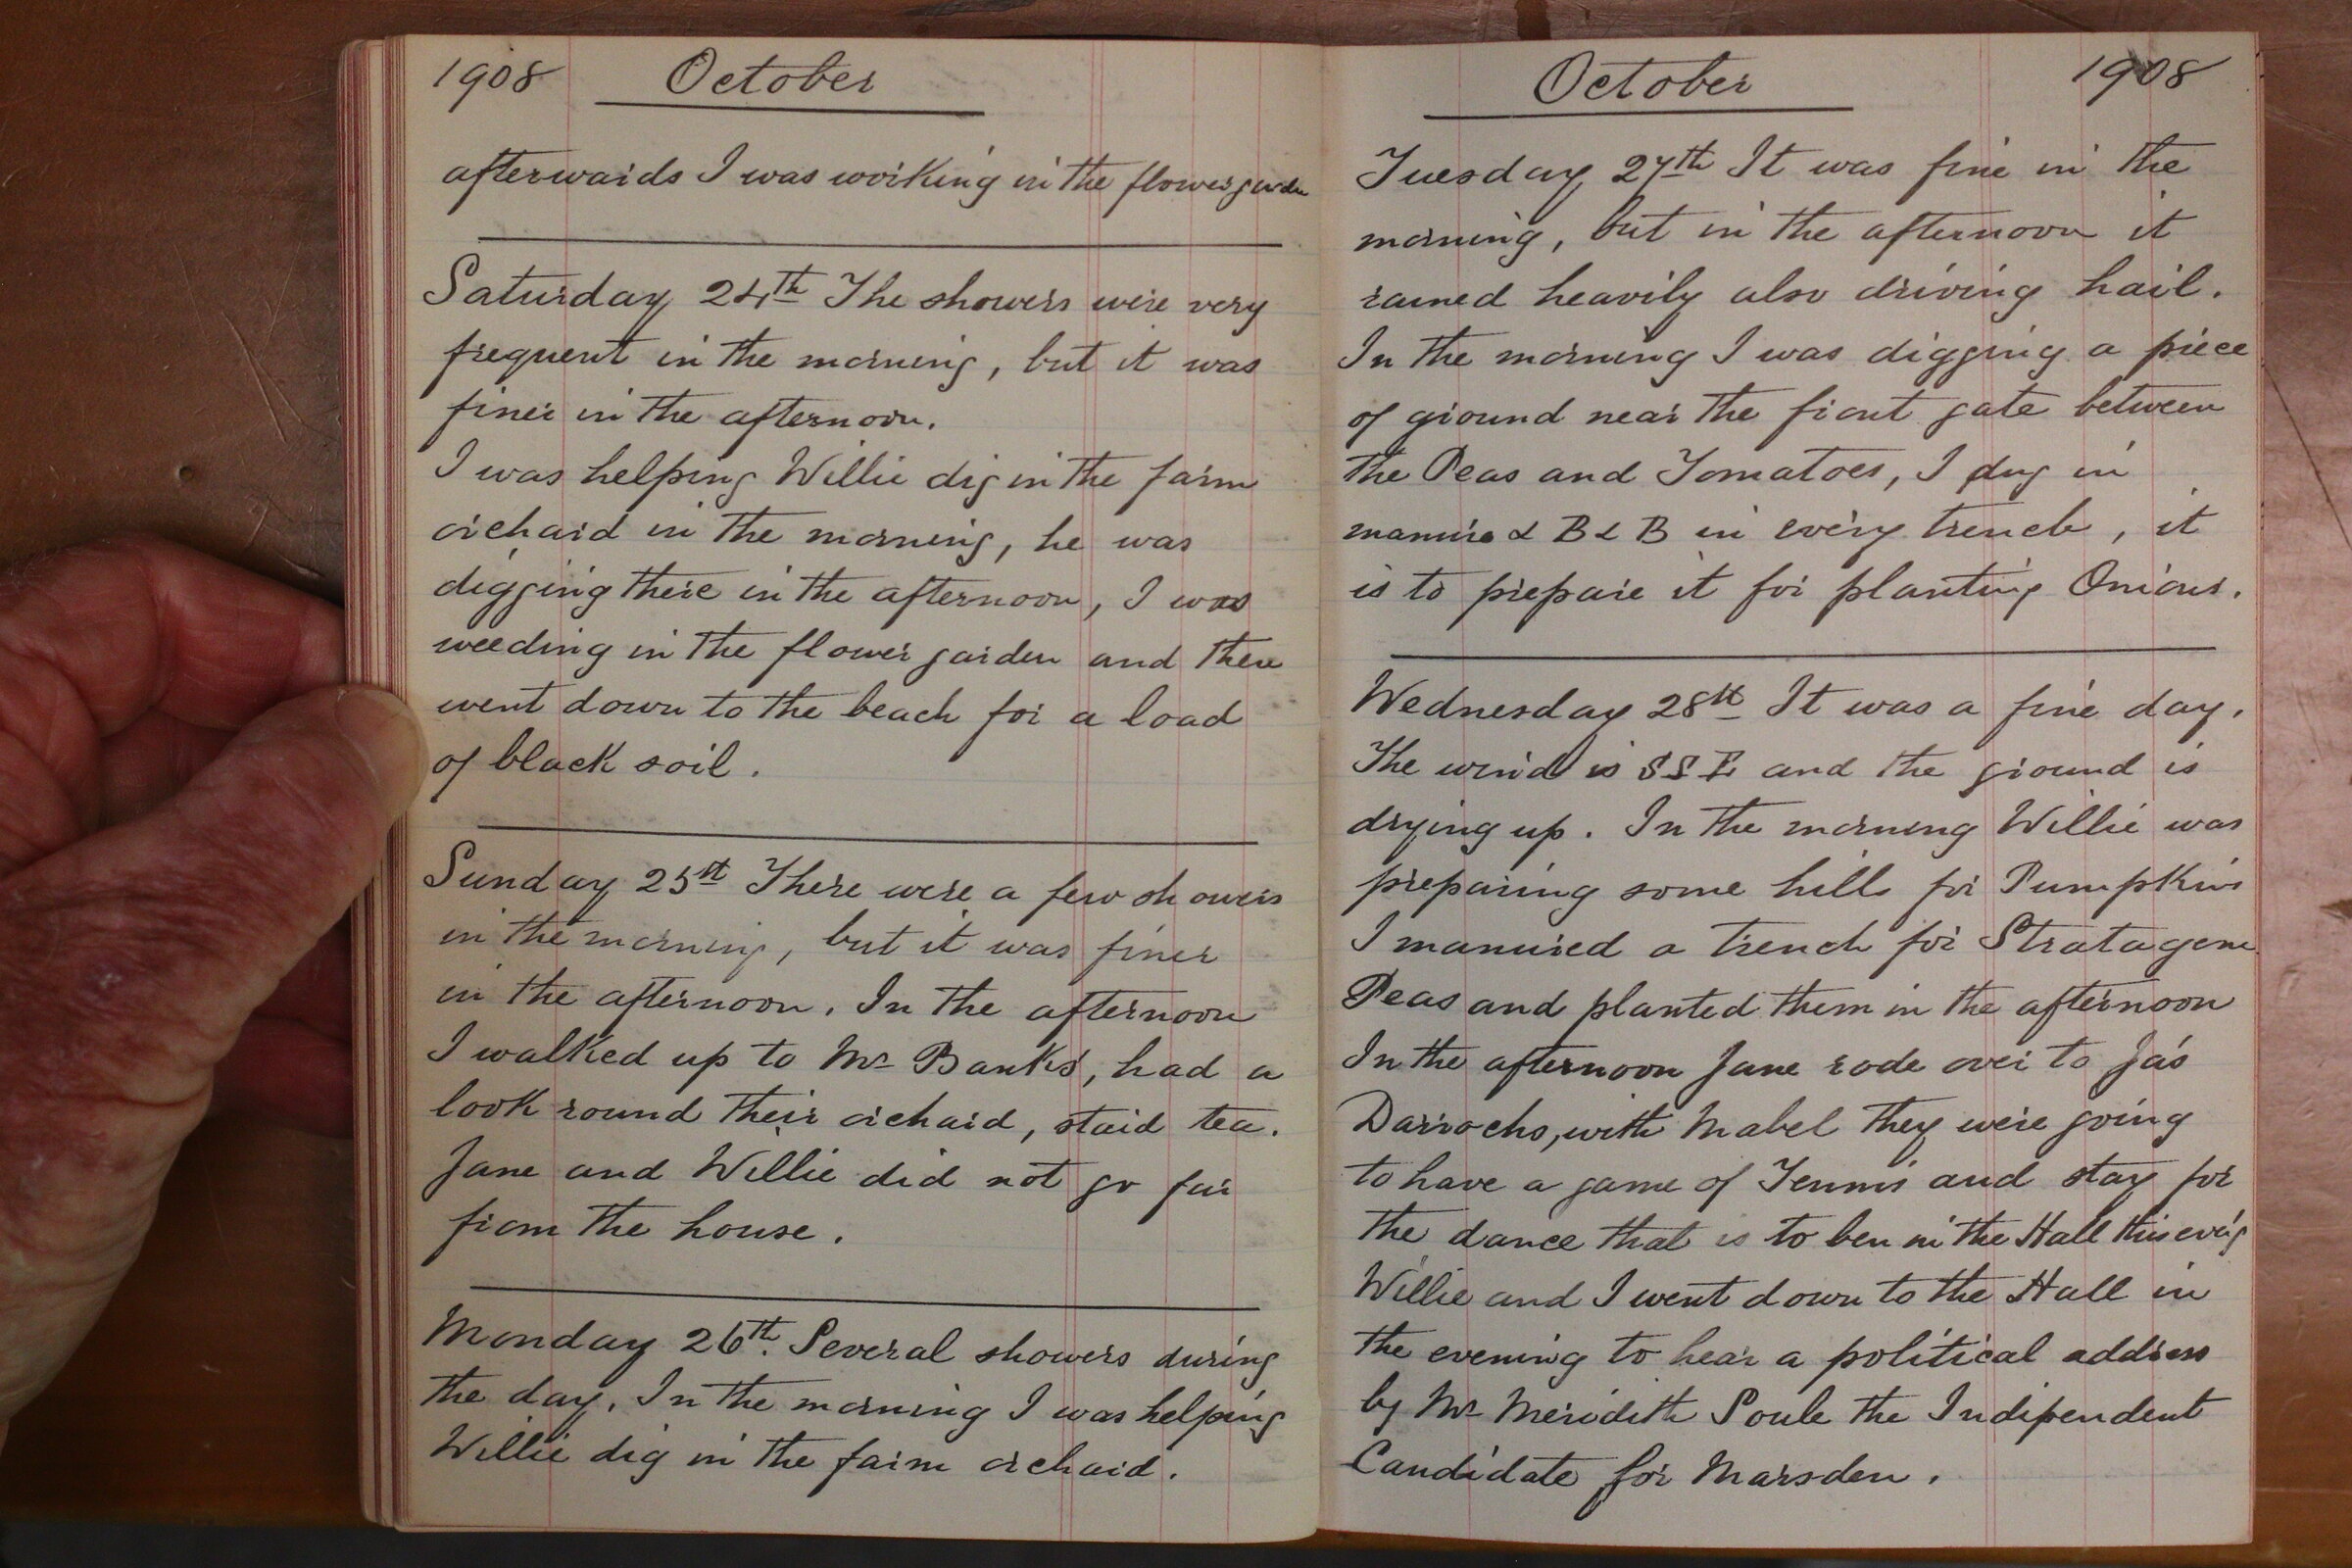 1908 October
afterwards I was working in the flower garden
Saturday 24th The showers were very
frequent in the morning, but it was
finer in the afternoon.
I was helping Willie dig in the farm
orchard in the morning, he was
digging there in the afternoon, I was
weeding in the flower garden and then
went down to the beach for a load
of black soil.
Sunday 25st There were a few showers
in the morning, but it was finer
in the afternoon. In the afternoon
I walked up to Mr Banks', had a
look round their orchard, staid tea.
Jane and Willie did not go far
from the house.
Monday 26th. Several showers during
the day. In the morning I was helping
Willie dig in the farm orchard.
October 1908
Tuesday 27th It was fine in the
morning, but in the afternoon it
rained heavily also driving hail.
In the morning I was digging a piece
of ground near the front gate between
the Peas and Tomatoes, I dug in
manure & B & B in every trench, it
is to prepare it for planting Onions.
Wednesday 28st It was a fine day.
The wind is SSE and the ground is
drying up. In the morning Willie was
preparing some hills for Pumpkins
I manured a trench for Stratagem
Peas and planted them in the afternoon
In the afternoon Jane rode over to Jas
Darrochs, with Mabel they were going
to have a game of Tennis and stay for
the dance that is to be in the Hall this ev'g
Willie and I went down to the Hall in
the evening to hear a political address
by Mr Meredith Soule the Independent
Candidate for Marsden.